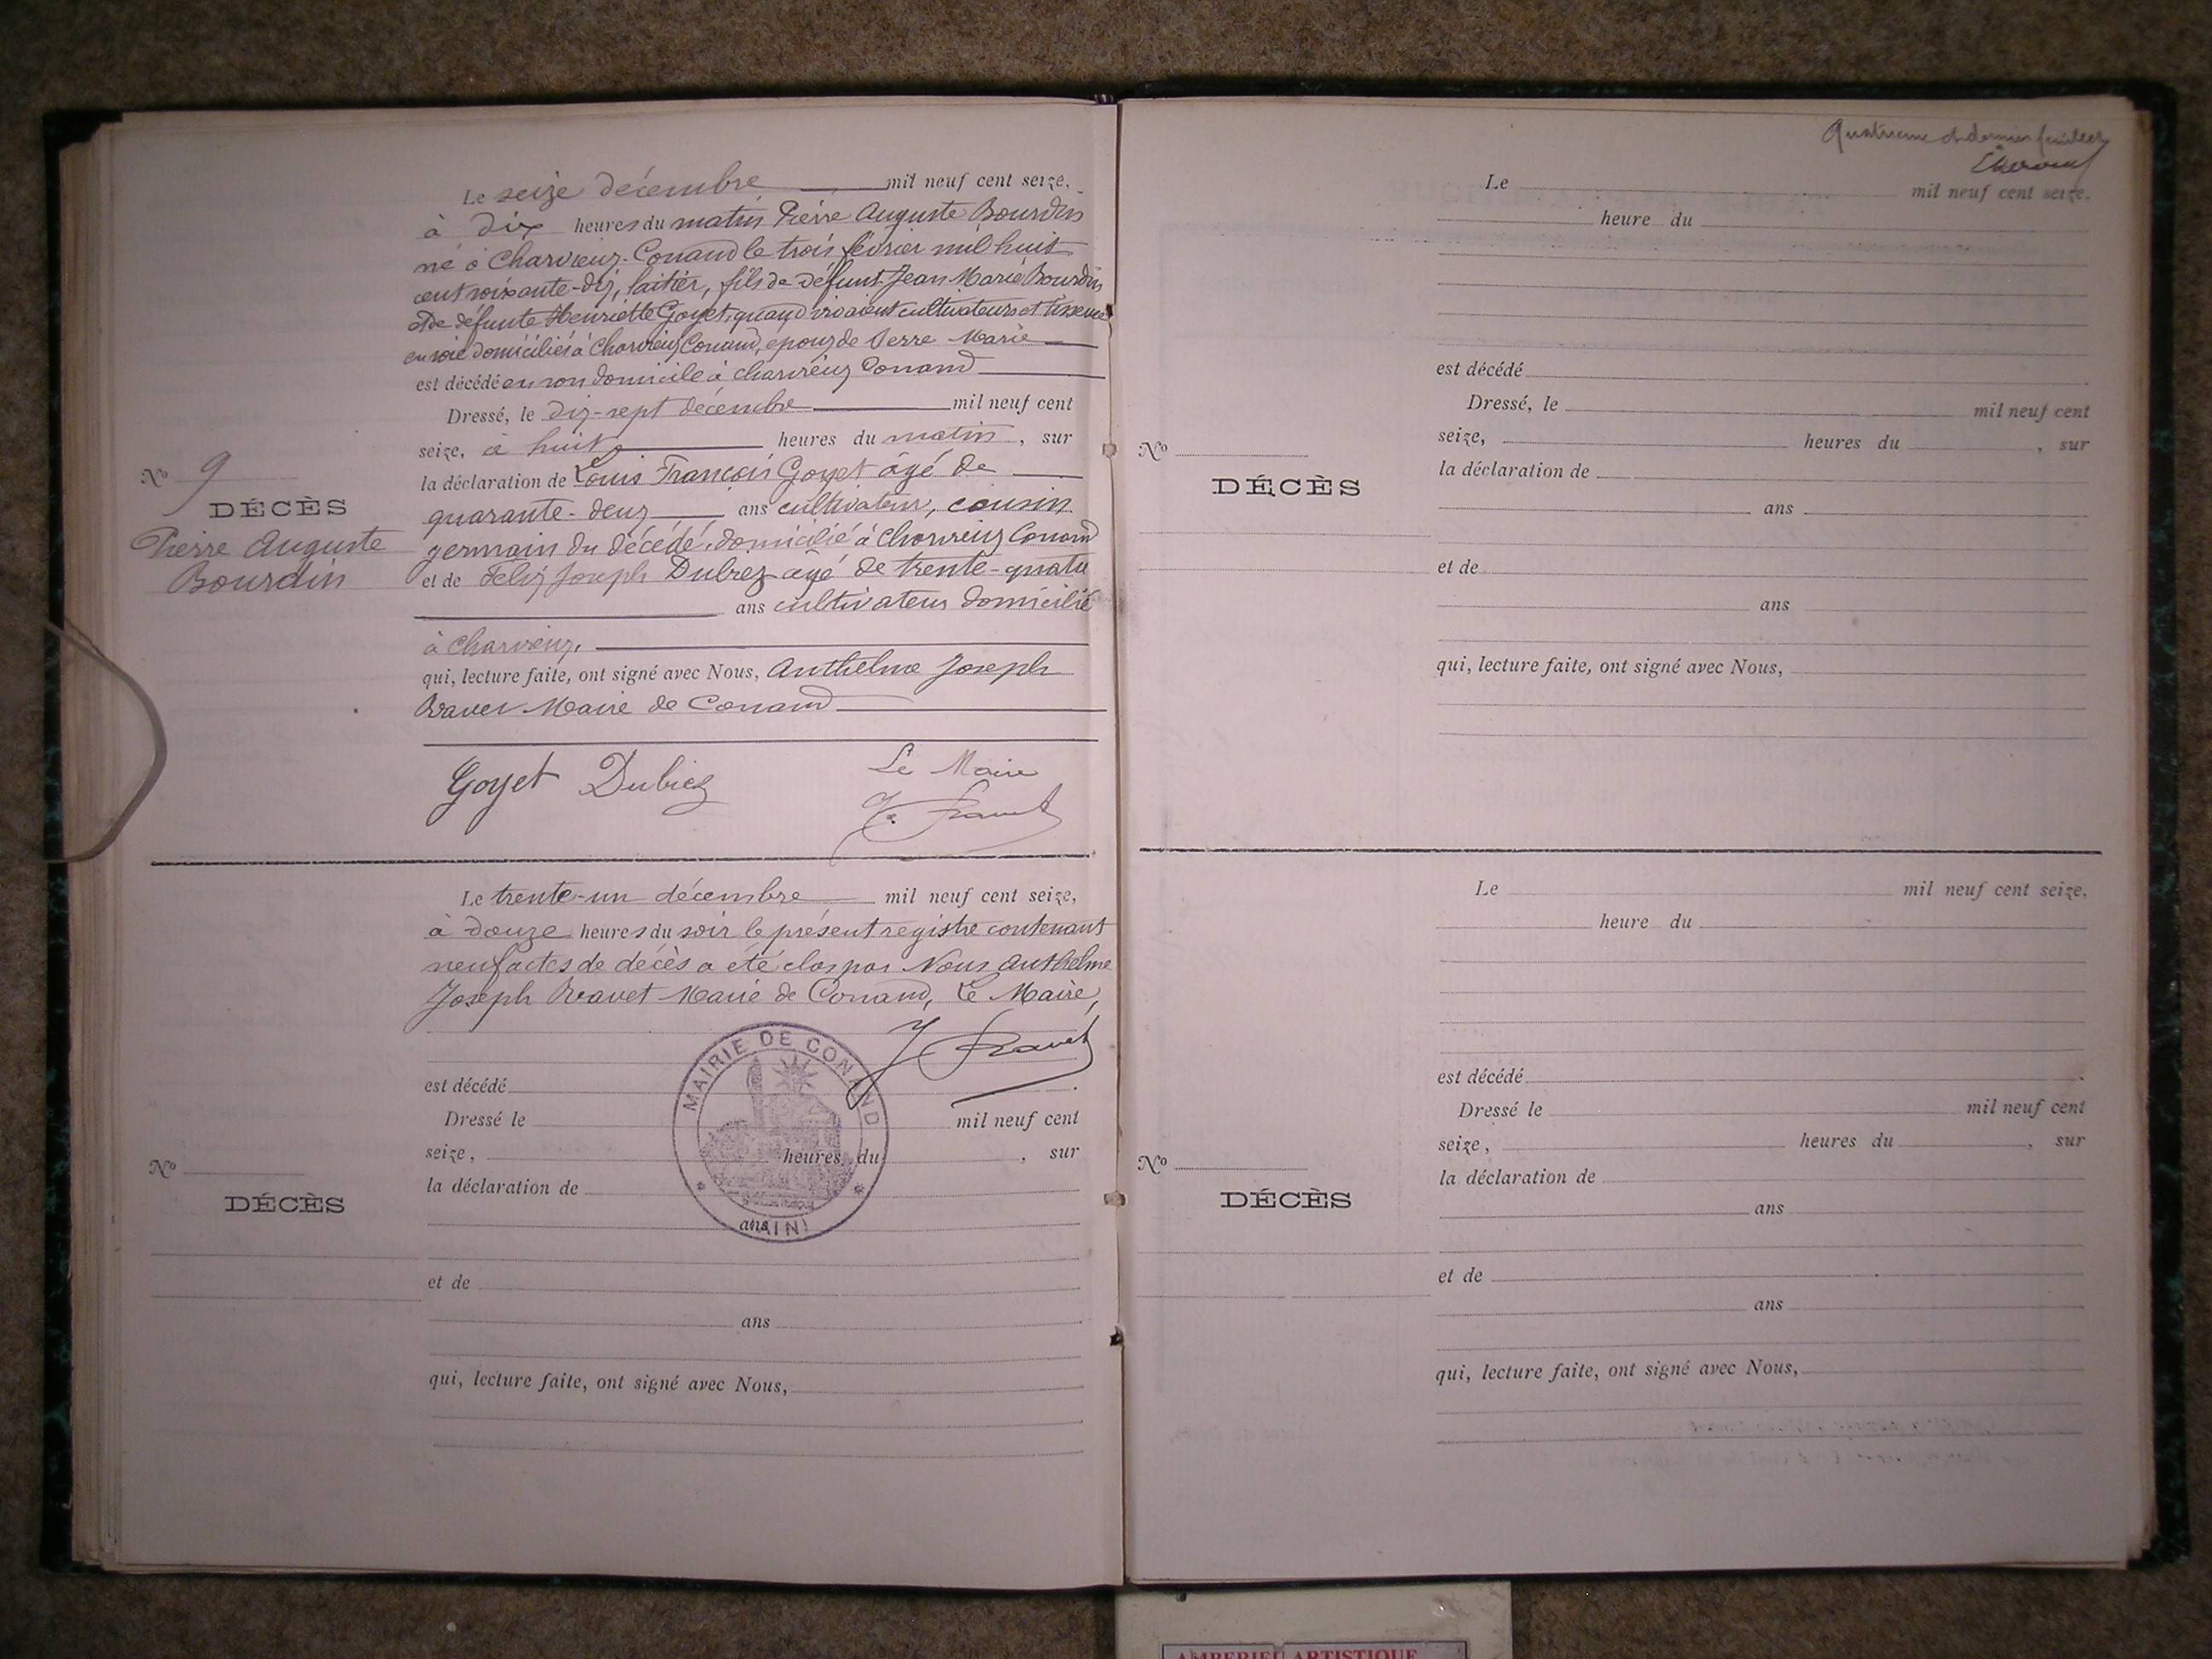 Le seize décembre mil neuf cent seize,
à dix heures du matin Pierre Auguste Bourdin
né à Charvieux-Conand le trois février mil huit
cent soixante-dix, laitier, fils de défunt Jean Marie Bourdin
et de défunte Henriette Goyet, quand vivaient cultivateurs et
en soie domiciliés à Charvieux Conand, epoux de Serre Marie
est décédé en son domicile à charvieux Conand
Dressé, le dix-sept décembre mil neuf cent
seize, à huit heures du matin, sur
la déclaration de Louis François Goyet âgé de
quarante-deux ans cultivateur, cousin
germain du décédé, domicilié à Charvieux Conand
et de Félix Joseph Dubiez âgé de trente-quatre
ans cultivateur domicilié
à Charvieux,
qui, lecture faite, ont signé avec Nous, Anthelme Joseph
Ravet Maire de Conand
Nº 9
DÉCÈS
Pierre Auguste
Bourdin
Goyet Dubiez Le Maire
J. Ravet
Le trente-un décembre mil neuf cent seize,
à douze heures du soir le présent registre contenant
neuf actes de décès a été clos par Nous Anthelme
Joseph Ravet Maire de Conand, Le Maire,
J Ravet
MAIRIE DE CONAND
(AIN)
est décédé
Dressé le mil neuf cent
seize, heures du , sur
la déclaration de
ans
et de
ans
qui, lecture faite, ont signé avec Nous,
Nº
DÉCÈS
Quatrième et dernier feuillet
Le mil neuf cent seize.
heure du
est décédé
Dressé, le mil neuf cent
seize, heures du , sur
la déclaration de
ans
et de
ans
qui, lecture faite, ont signé avec Nous,
Nº
DÉCÈS
Le mil neuf cent seize.
heure du
est décédé
Dressé le mil neuf cent
seize, heures du , sur
la déclaration de
ans
et de
ans
qui, lecture faite, ont signé avec Nous,
Nº
DÉCÈS
AMBERIEU ARTISTIQUE